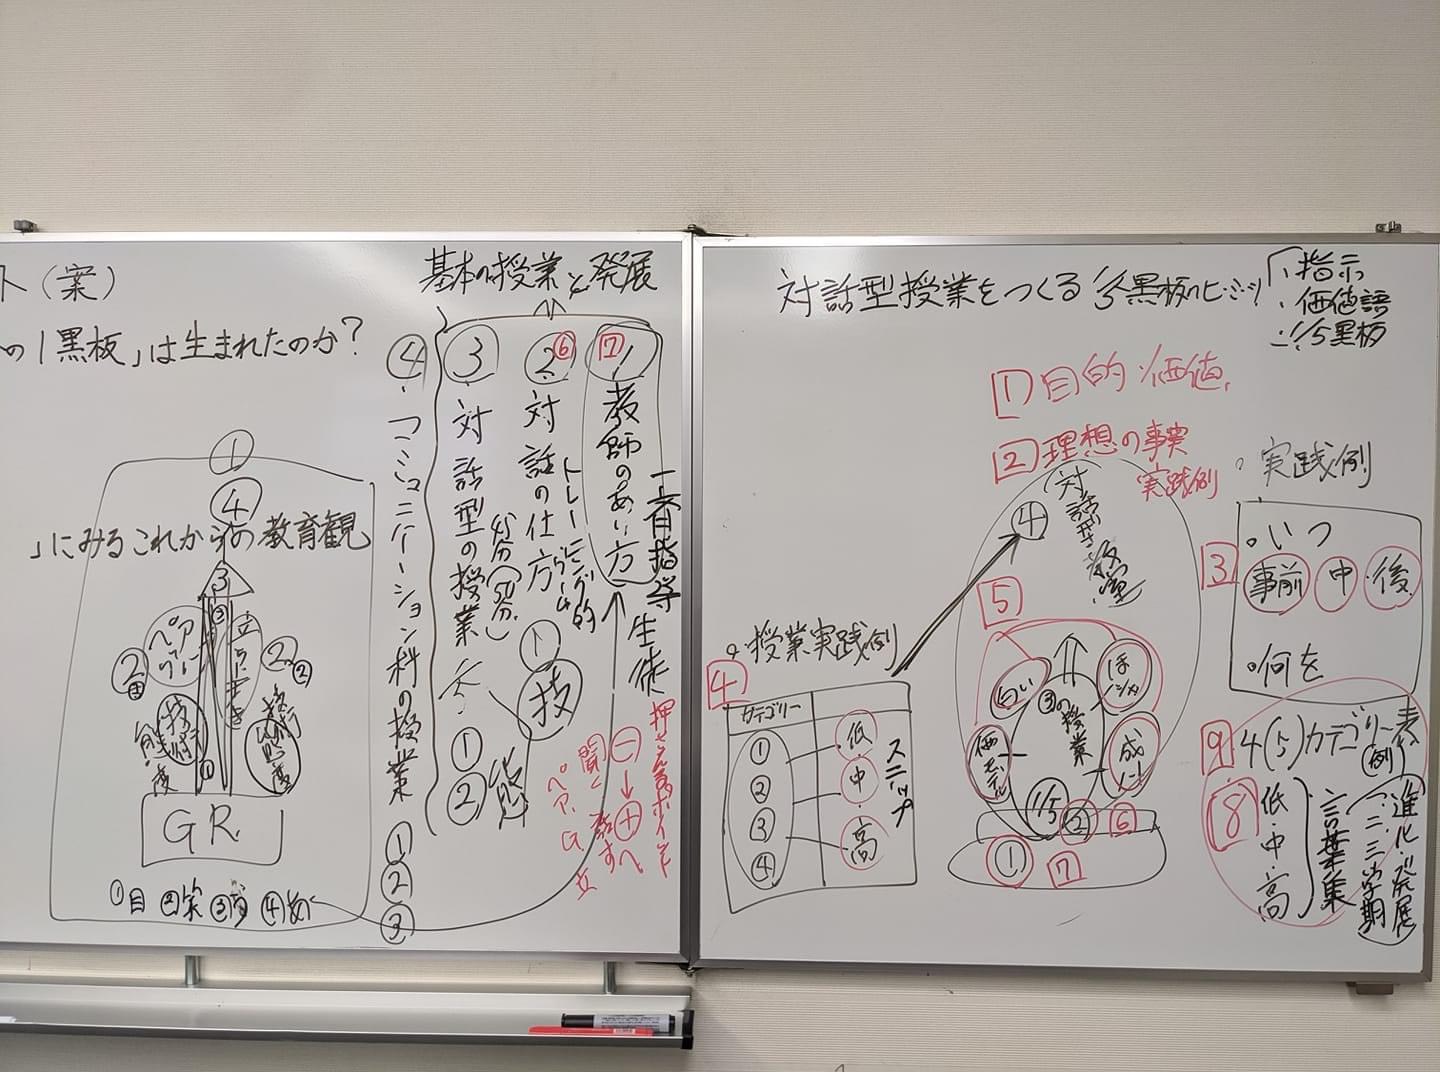 ト(案)
の1黒板」は生まれたのか?
」にみるこれからの教育観
①
④
3
ペア
②
GR
①目
基本の授業と発展
7
1
教師のあい方
一番指導
生徒
2
6
対話の仕方
トレーニング的
①
技
3
対話型の授業
45分(50分)
①
②
④
コミュニケーション科の授業
①
②
③
押さえるポイント
⊖→⊕へ
聞く
ペア、G、立
対話型授業をつくる1/5黒板のヒミツ
・指示
・価値語
・1/5黒板
1 目的・価値
2 理想の事実
実践例
④
対話型
教室
5
白い
③の授業
ほ
価
成
1/5
②
6
①
7
。授業実践例
4
カテゴリー
①
②
③
④
低
中
高
ステップ
。実践例
3
。いつ
事前 中 後
。何を
9 4(5)カテゴリー表
(例)
8
低・中・高
言葉集
進化・発展
一・二・三学期